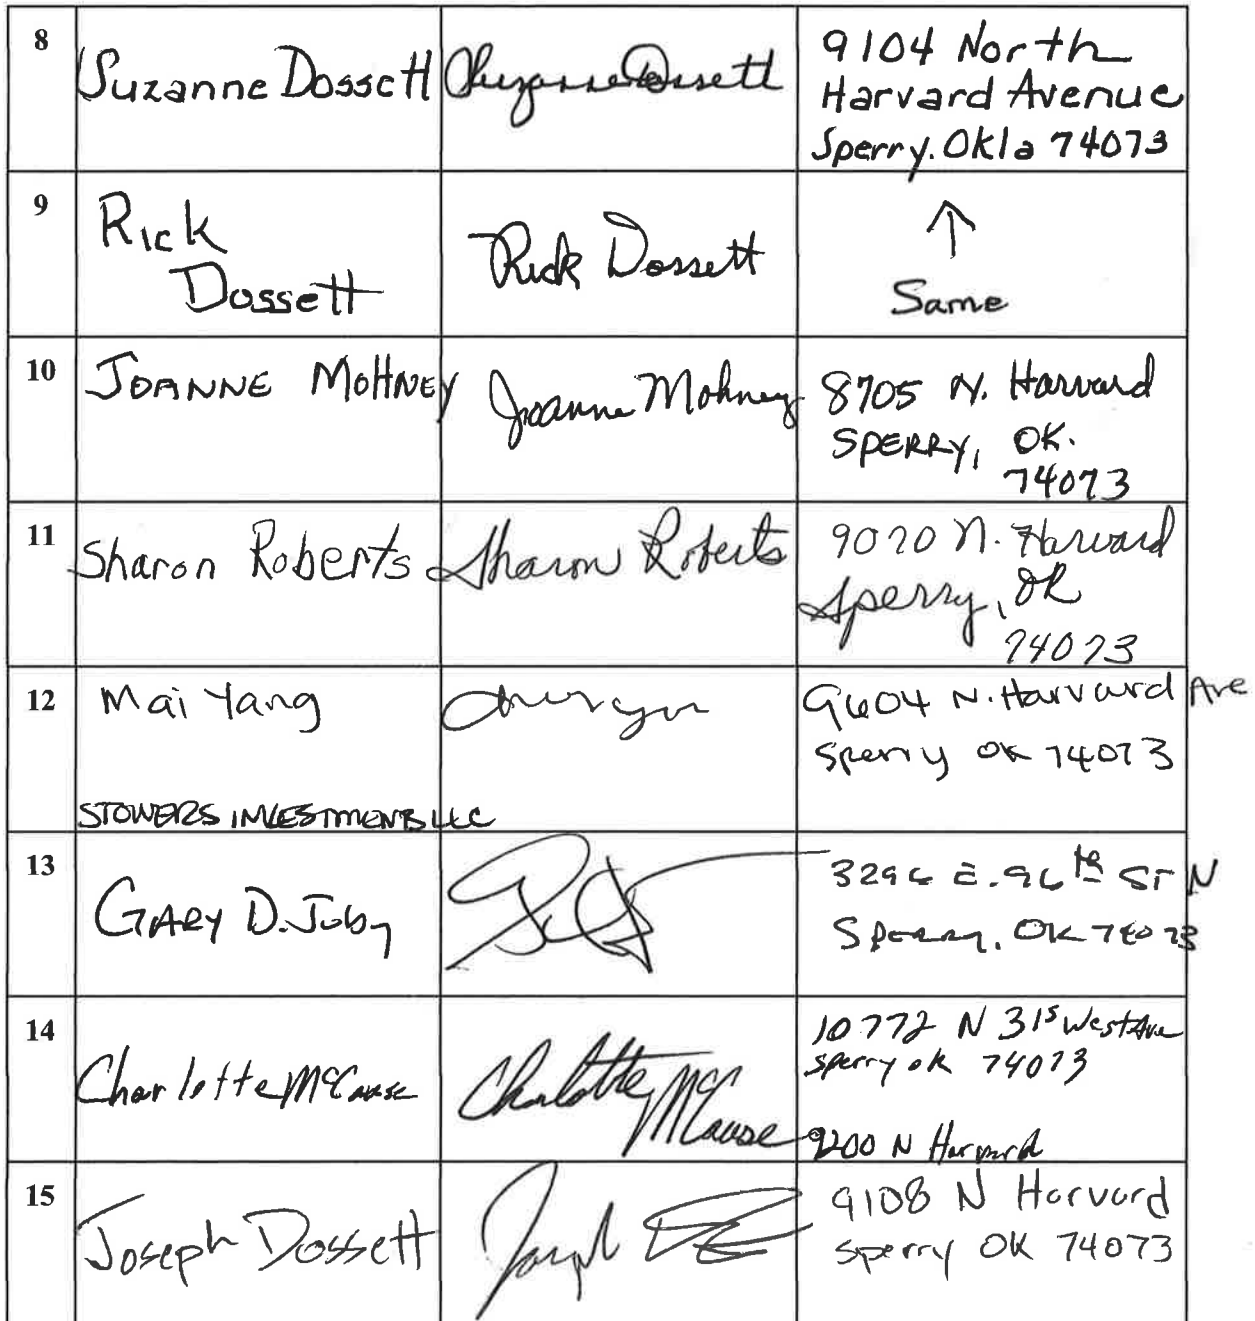 8
Suzanne Dossett
Suzanne Dossett
9104 North
Harvard Avenue
Sperry. Okla 74073
9
Rick
Dossett
Rick Dossett
↑
Same
10
JOANNE MOHNEY
Joanne Mohney
8705 N. Harvard
SPERRY, OK.
74073
11
Sharon Roberts
Sharon Roberts
9020 N. Harvard
Sperry, OK
74073
12
Mai Yang
9604 N. Harvard Ave
Sperry OK 74073
STOWERS INVESTMENTS LLC
13
GARY D. Juby
3296 E. 96th ST N
Sperry, OK 74073
14
Charlotte McCause
Charlotte McCause
10772 N 31s West Ave
sperry ok 74073
9200 N Harvard
15
Joseph Dossett
Joseph
9108 N Harvard
Sperry OK 74073